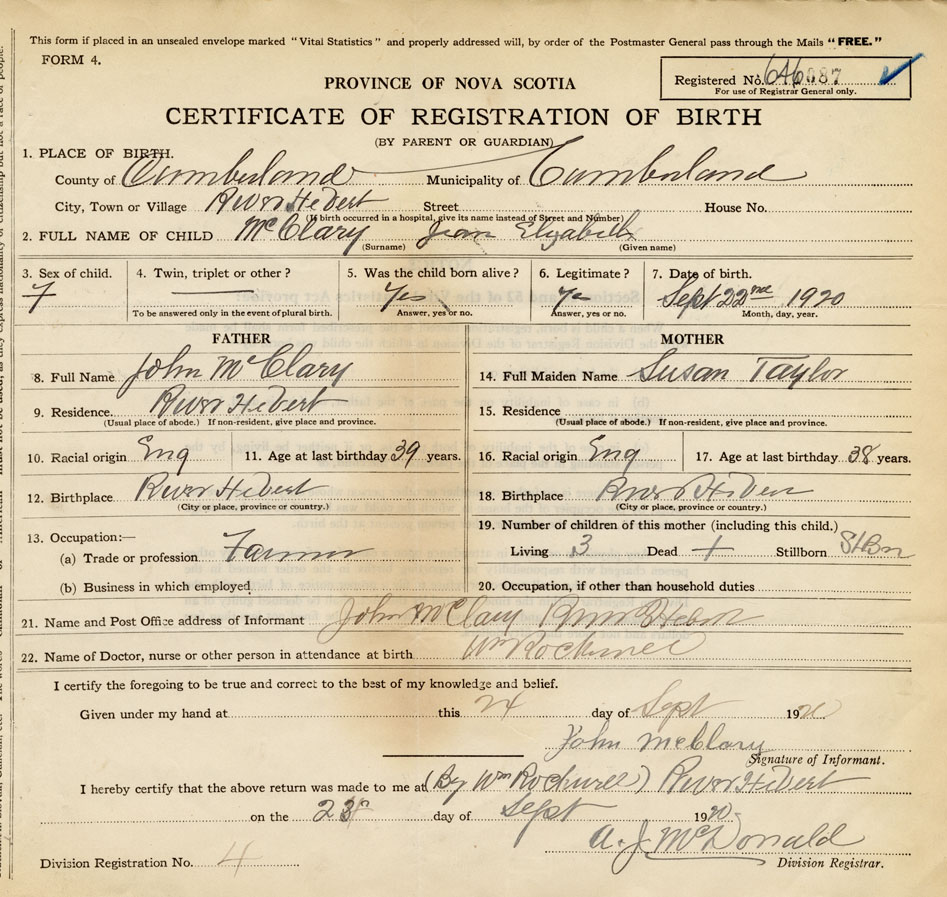 This form if placed in an unsealed envelope marked "Vital Statistics" and properly addressed will, by order of the Postmaster General pass through the Mails "FREE."
FORM 4.
Registered No. 646087
For use of Registrar General only.
PROVINCE OF NOVA SCOTIA
CERTIFICATE OF REGISTRATION OF BIRTH
(BY PARENT OR GUARDIAN)
1. PLACE OF BIRTH.
County of Cumberland Municipality of Cumberland
City, Town or Village River Hebert Street House No.
(If birth occurred in a hospital, give its name instead of Street and Number)
2. FULL NAME OF CHILD McClary Jean Elizabeth
(Surname) (Given name)
3. Sex of child. 4. Twin, triplet or other? 5. Was the child born alive? 6. Legitimate? 7. Date of birth.
F — Yes Yes Sept 22nd 1920
To be answered only in the event of plural birth. Answer, yes or no. Answer, yes or no. Month, day, year.
FATHER
8. Full Name John McClary
9. Residence. River Hebert
(Usual place of abode.) If non-resident, give place and province.
10. Racial origin Eng 11. Age at last birthday 39 years.
12. Birthplace River Hebert
(City or place, province or country.)
13. Occupation:—
(a) Trade or profession Farmer
(b) Business in which employed
MOTHER
14. Full Maiden Name Susan Taylor
15. Residence
(Usual place of abode.) If non-resident, give place and province.
16. Racial origin Eng 17. Age at last birthday 38 years.
18. Birthplace River Hebert
(City or place, province or country.)
19. Number of children of this mother (including this child.)
Living 3 Dead Stillborn
20. Occupation, if other than household duties
21. Name and Post Office address of Informant John McClary River Hebert
22. Name of Doctor, nurse or other person in attendance at birth Wm Rockwell
I certify the foregoing to be true and correct to the best of my knowledge and belief.
Given under my hand at this 24 day of Sept 1920
John McClary
Signature of Informant.
I hereby certify that the above return was made to me at (By Wm Rockwell) River Hebert
on the 23 day of Sept 1920
A. J. McDonald
Division Registrar.
Division Registration No. 4